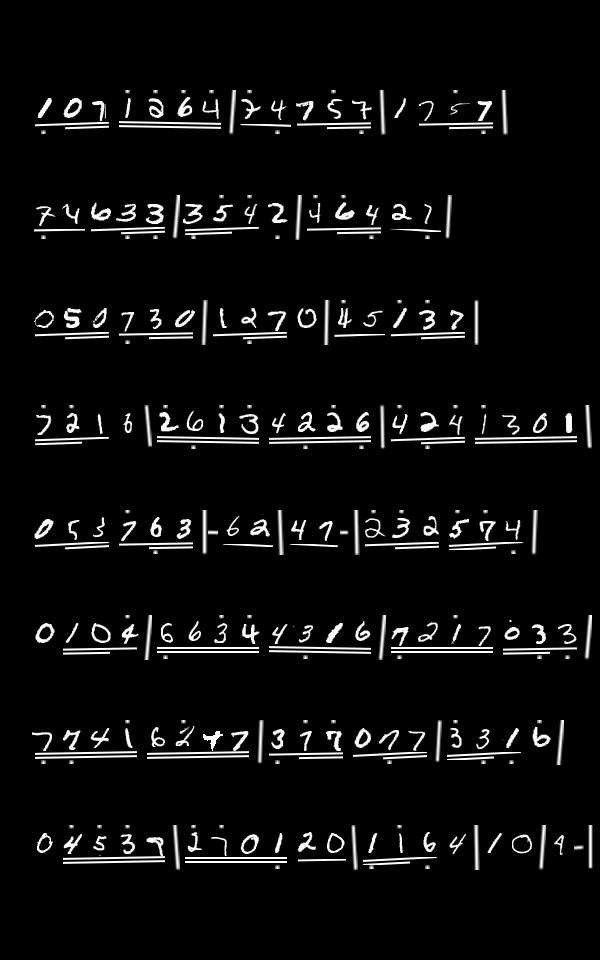 107 1264|24757|1757
74633|3542|46427
050730|1270|45137
7216|2613 4226|424 1301
053763|-62|47-|232574
0104|6634 4316|7217 033
7741 6277|377077|3316
04539|2701 20|1164|10|9-|